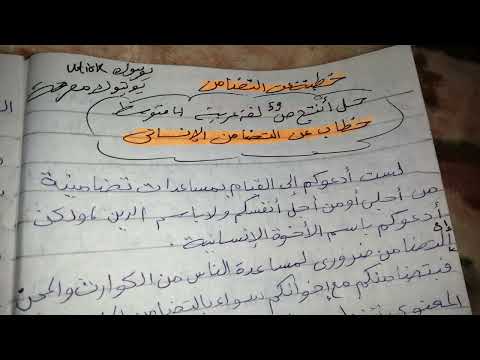 خطبة عن التضامن
يوتيوب
حل أنتج ص 59 لغة عربية 4 متوسط
خطاب عن التضامن الإنساني
لست أدعوكم إلى القيام بمساعدات تضامنية
من أجلي أو من أجل أنفسكم ولا باسم الدين ولكن
أدعوكم باسم الأخوة الإنسانية.
التضامن ضروري لمساعدة الناس من الكوارث والمحن
فتضامنكم مع إخوانكم سواء بالتضامن
المعنوي